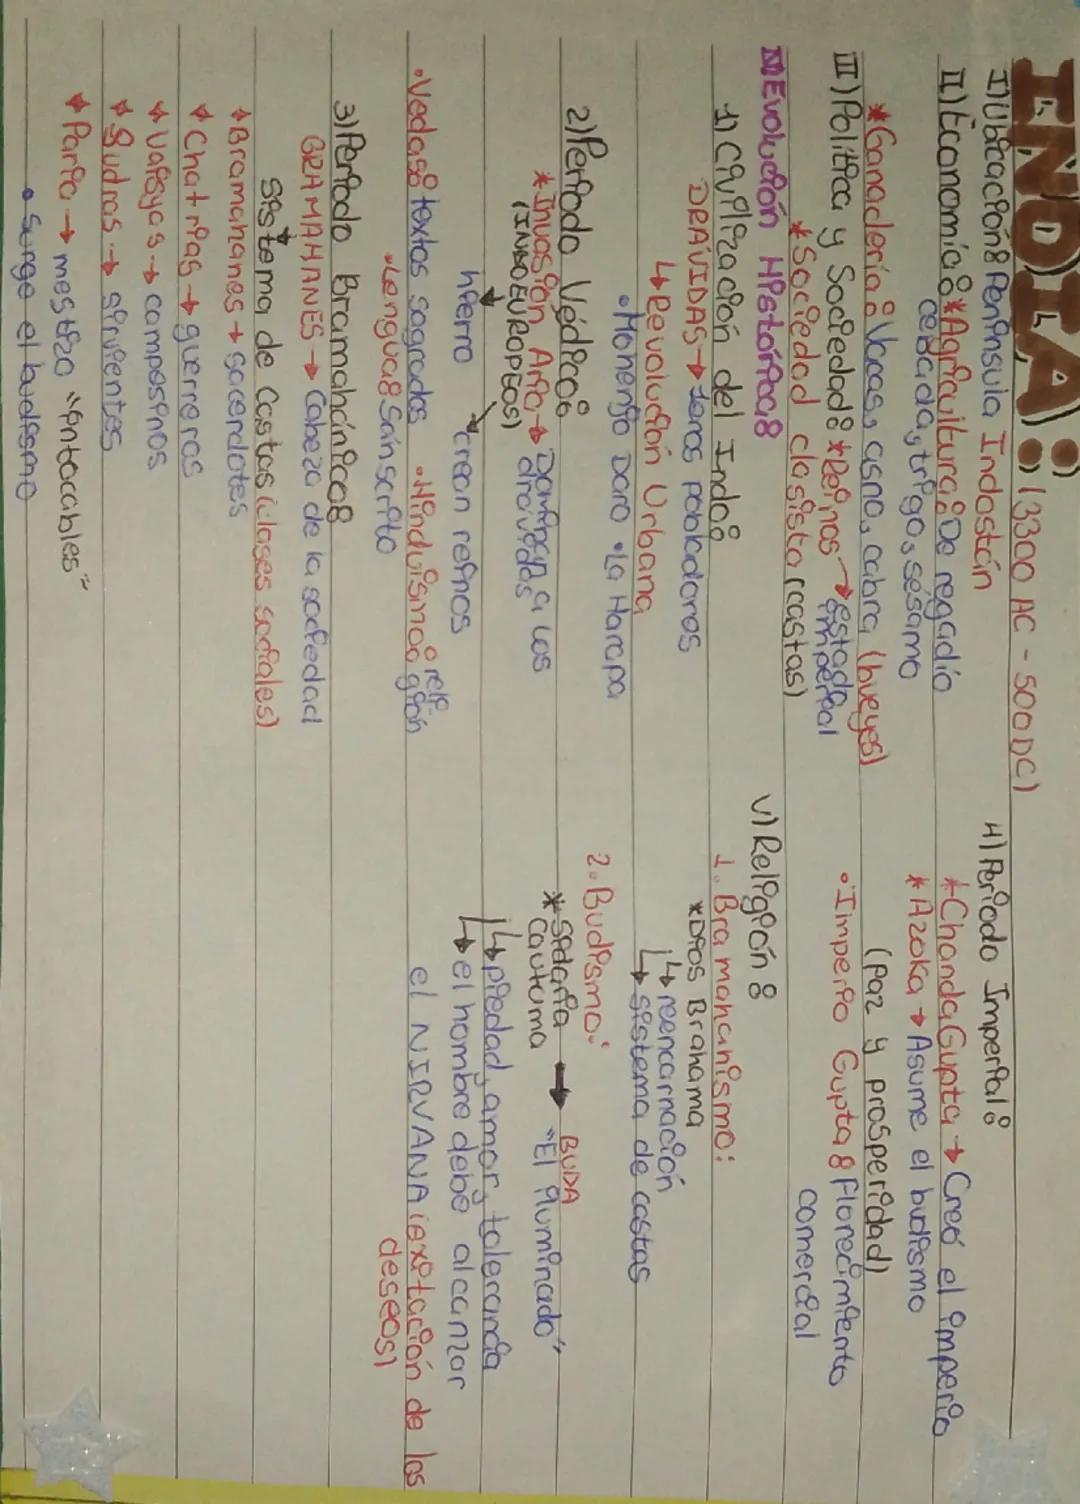 INDIA: (3300 AC - 500 DC)
I) Ubicación: Península Indostán
II) Economía: *Agricultura: De regadío
cebada, trigo, sésamo
*Ganadería: Vacas, asno, cabra (bueyes)
III) Política y Sociedad: *Reinos → estado imperial
*Sociedad clasista (castas)
IV Evolución Histórica:
1) Civilización del Indo:
DRAVIDAS → 1eros pobladores
↳ Revolución Urbana
• Mohengo Daro • La Harapa
2) Período Védico:
* Invasión Aria → Domina a los dravidas
(INDOEUROPEOS)
hierro crean reinos
• Vedas: textos sagrados • Hinduismo: religión
• Lengua: Sánscrito
3) Período Bramahánico:
BRAMAHANES → Cabeza de la sociedad
Sistema de Castas (clases sociales)
* Bramahanes → sacerdotes
* Chatrias → guerreros
* Vaisyas → campesinos
* Sudras → sirvientes
* Paria → mestizo "intocables"
• Surge el budismo
4) Período Imperial:
* Chanda Gupta → Creó el imperio
* Azoka → Asume el budismo
(paz y prosperidad)
• Imperio Gupta: florecimiento
comercial
V) Religión:
1. Bramahanismo:
* Dios Brahama
↳ reencarnación
↳ sistema de castas
2. Budismo:
* Sidaria Cautuma → BUDA "El iluminado"
↳ piedad, amor, tolerancia
↳ el hombre debe alcanzar
el NIRVANA (exitación de los
deseos)